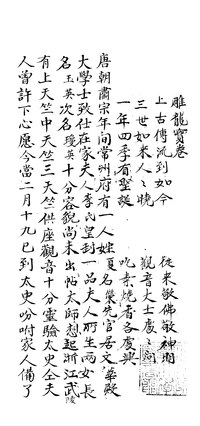 雕龍寶卷
上古傳流到如今 從來敬佛敬神明
三世如來人人曉 觀音大士處處聞
一年四季有聖誕 吃素燒香各處興
唐朝肅宗年間常州府有一人姓夏名榮先官居文華殿
大學士致仕在家夫人李氏皇封一品夫人所生兩女長
名玉英次名瓊英十分容貌尚未出帖太師想起浙江武陵
有上天竺中天竺三天竺供座觀音十分靈驗太史仝夫
人曾許下心愿今當二月十九已到太史吩咐家人備了